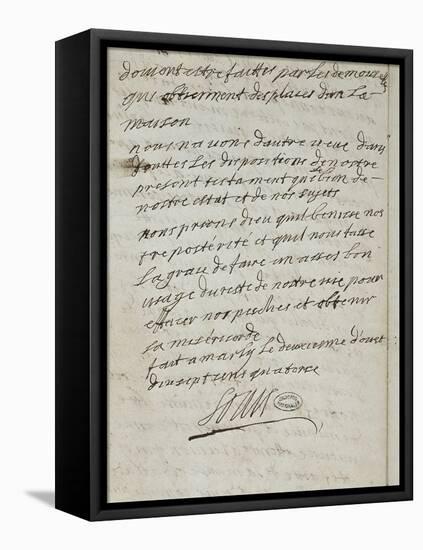 doivent estre faittes par les demoiselles
qui obtiennent des places dans la
maison
nous navons dautre veue dans
touttes les dispositions de nostre
present testament que le bien de
nostre estat et de nos sujets
nous prions dieu quil benisse nos
tre postérité et quil nous fasse
la grace de faire un asses bon
usage du reste de nostre vie pour
effacer nos péchés et obtenir
sa miséricorde
fait a marly le deuxieme daoust
dix sept cens quatorze
Louis